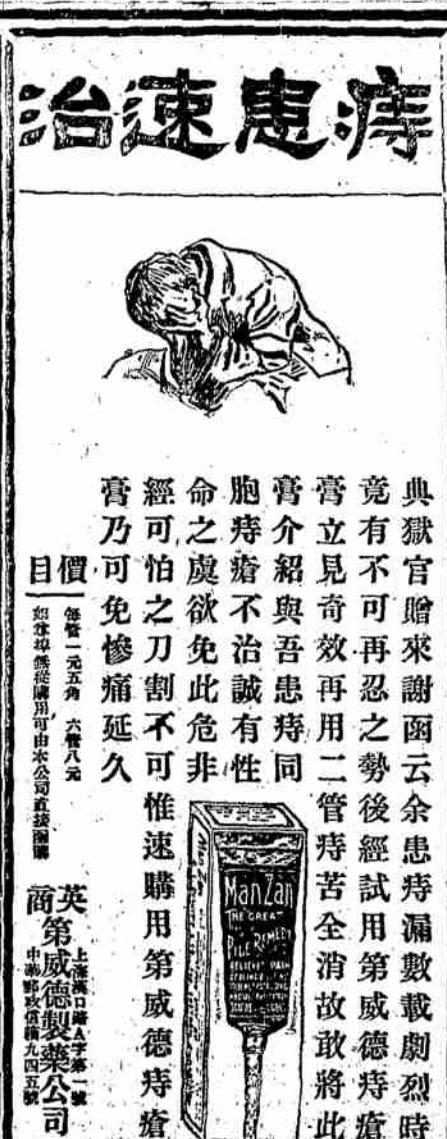 痔患速治
典獄官贈來謝函云余患痔漏數載劇烈時
竟有不可再忍之勢後經試用第威德痔瘡
膏立見奇效再用二管痔苦全消故敢將此
膏介紹與吾患痔同
胞痔瘡不治誠有性
命之虞欲免此危非
經可怕之刀割不可惟速購用第威德痔瘡
膏乃可免慘痛延久
ManZan
THE GREAT
PILE REMEDY
價目
每管一元五角 六管八元
埠無從購用可由本公司直接函購
英商
第威德製藥公司
上海漢口路A字第一號
中華郵政信箱九四五號